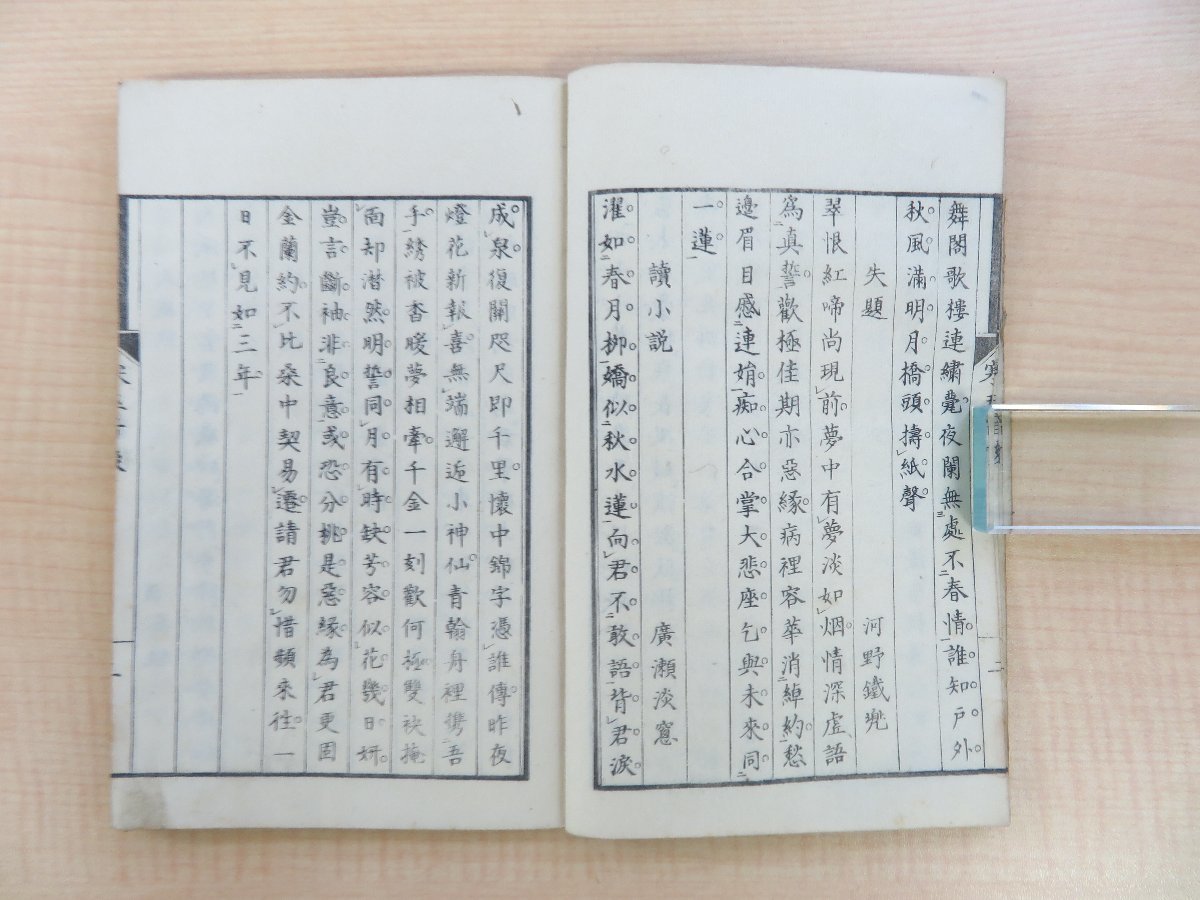 舞閣歌樓連繡甍夜闌無處不春情誰知戸外
秋風滿明月橋頭擣紙聲
失題　河野鐵兜
翠恨紅啼尚現前夢中有夢淡如烟情深虛語
為真誓歡極佳期亦惡緣病裡容華消綽約愁
邊眉目感連娟痴心合掌大悲座乞與未來同
一蓮
讀小説　廣瀬淡窓
濯如春月柳嬌似秋水蓮向君不敢語背君淚
成泉復關咫尺即千里懷中錦字憑誰傳昨夜
燈花新報喜無端邂逅小神仙青翰舟裡携吾
手綉被香暖夢相牽千金一刻歡何極雙袂掩
面却潜然明誓同月有時缺芳容似花幾日妍
豈言斷袖非良意或恐分桃是惡緣為君更固
金蘭約不比桑中契易遷請君勿惜頻來往一
日不見如三年